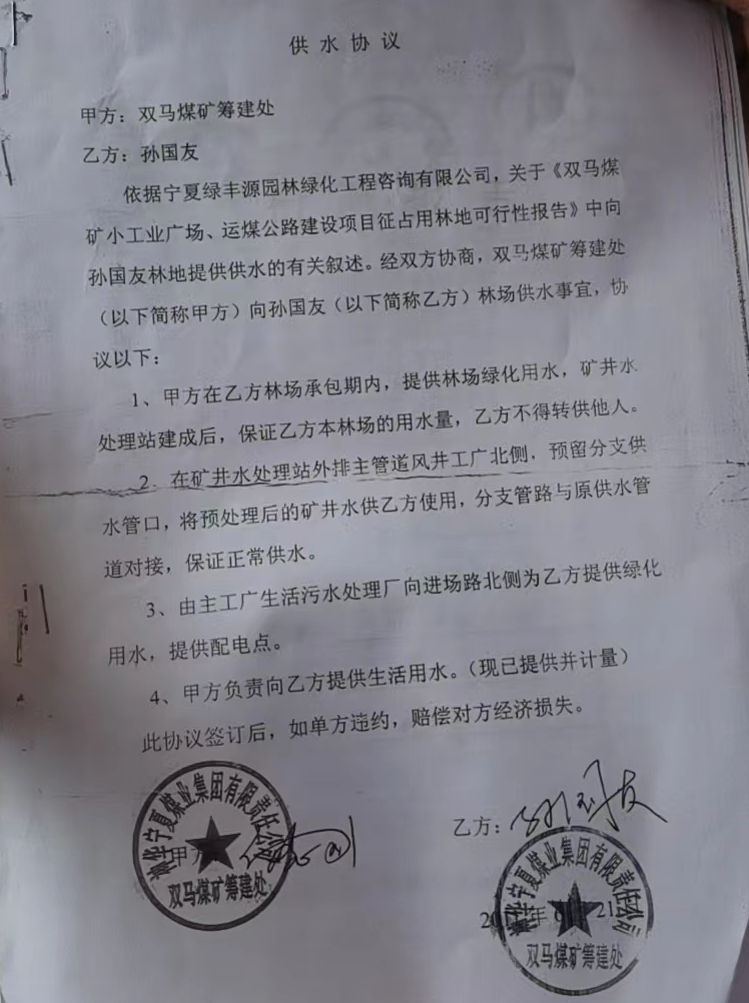 供水协议
甲方：双马煤矿筹建处
乙方：孙国友
依据宁夏绿丰源园林绿化工程咨询有限公司，关于《双马煤
矿小工业广场、运煤公路建设项目征占用林地可行性报告》中向
孙国友林地提供供水的有关叙述。经双方协商，双马煤矿筹建处
（以下简称甲方）向孙国友（以下简称乙方）林场供水事宜，协
议以下：
1、甲方在乙方林场承包期内，提供林场绿化用水，矿井水
处理站建成后，保证乙方本林场的用水量，乙方不得转供他人。
2、在矿井水处理站外排主管道风井工广北侧，预留分支供
水管口，将预处理后的矿井水供乙方使用，分支管路与原供水管
道对接，保证正常供水。
3、由主工广生活污水处理厂向进场路北侧为乙方提供绿化
用水，提供配电点。
4、甲方负责向乙方提供生活用水。（现已提供并计量）
此协议签订后，如单方违约，赔偿对方经济损失。
乙方：孙国友
甲方
神华宁夏煤业集团有限责任公司
双马煤矿筹建处
年
21
神华宁夏煤业集团有限责任公司
双马煤矿筹建处